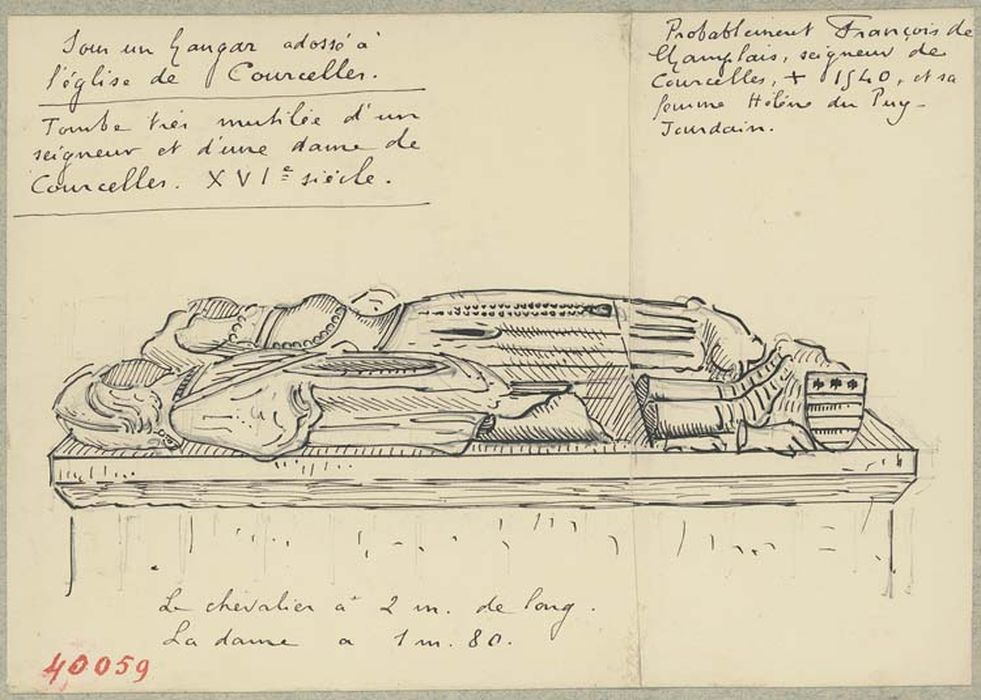 Sous un hangar adossé à
l'église de Courcelles.
Tombe très mutilée d'un
seigneur et d'une dame de
Courcelles. XVIe siècle.
Probablement François de
Champlais, seigneur de
Courcelles, + 1540, et sa
femme Hélène du Puy-
Jourdain.
Le chevalier a 2 m. de long.
La dame a 1 m. 80.
40059